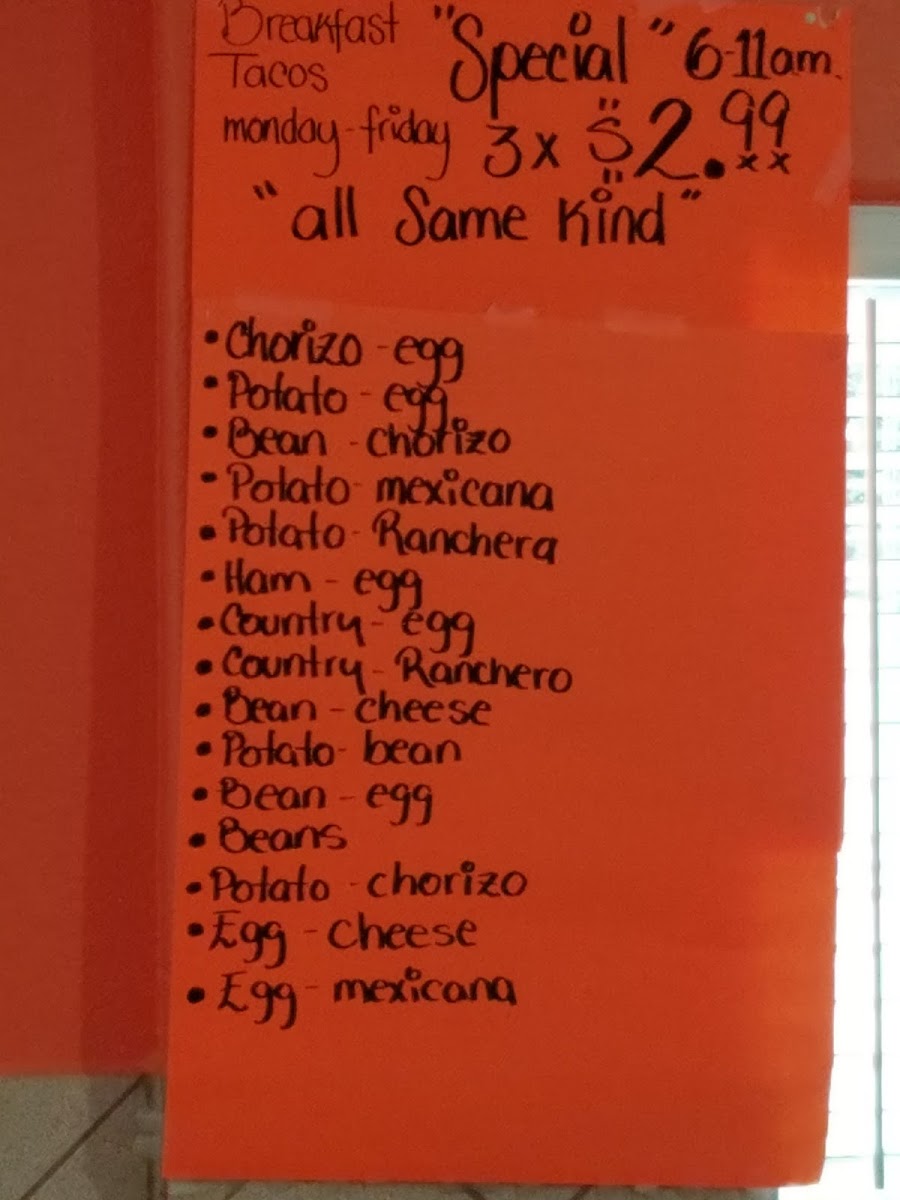 Breakfast "Special" 6-11am.
Tacos
monday-friday 3x $2.99
"all Same Kind"
• Chorizo - egg
• Potato - egg
• Bean - chorizo
• Potato - mexicana
• Potato - Ranchera
• Ham - egg
• Country - egg
• Country - Ranchero
• Bean - cheese
• Potato - bean
• Bean - egg
• Beans
• Potato - chorizo
• Egg - cheese
• Egg - mexicana